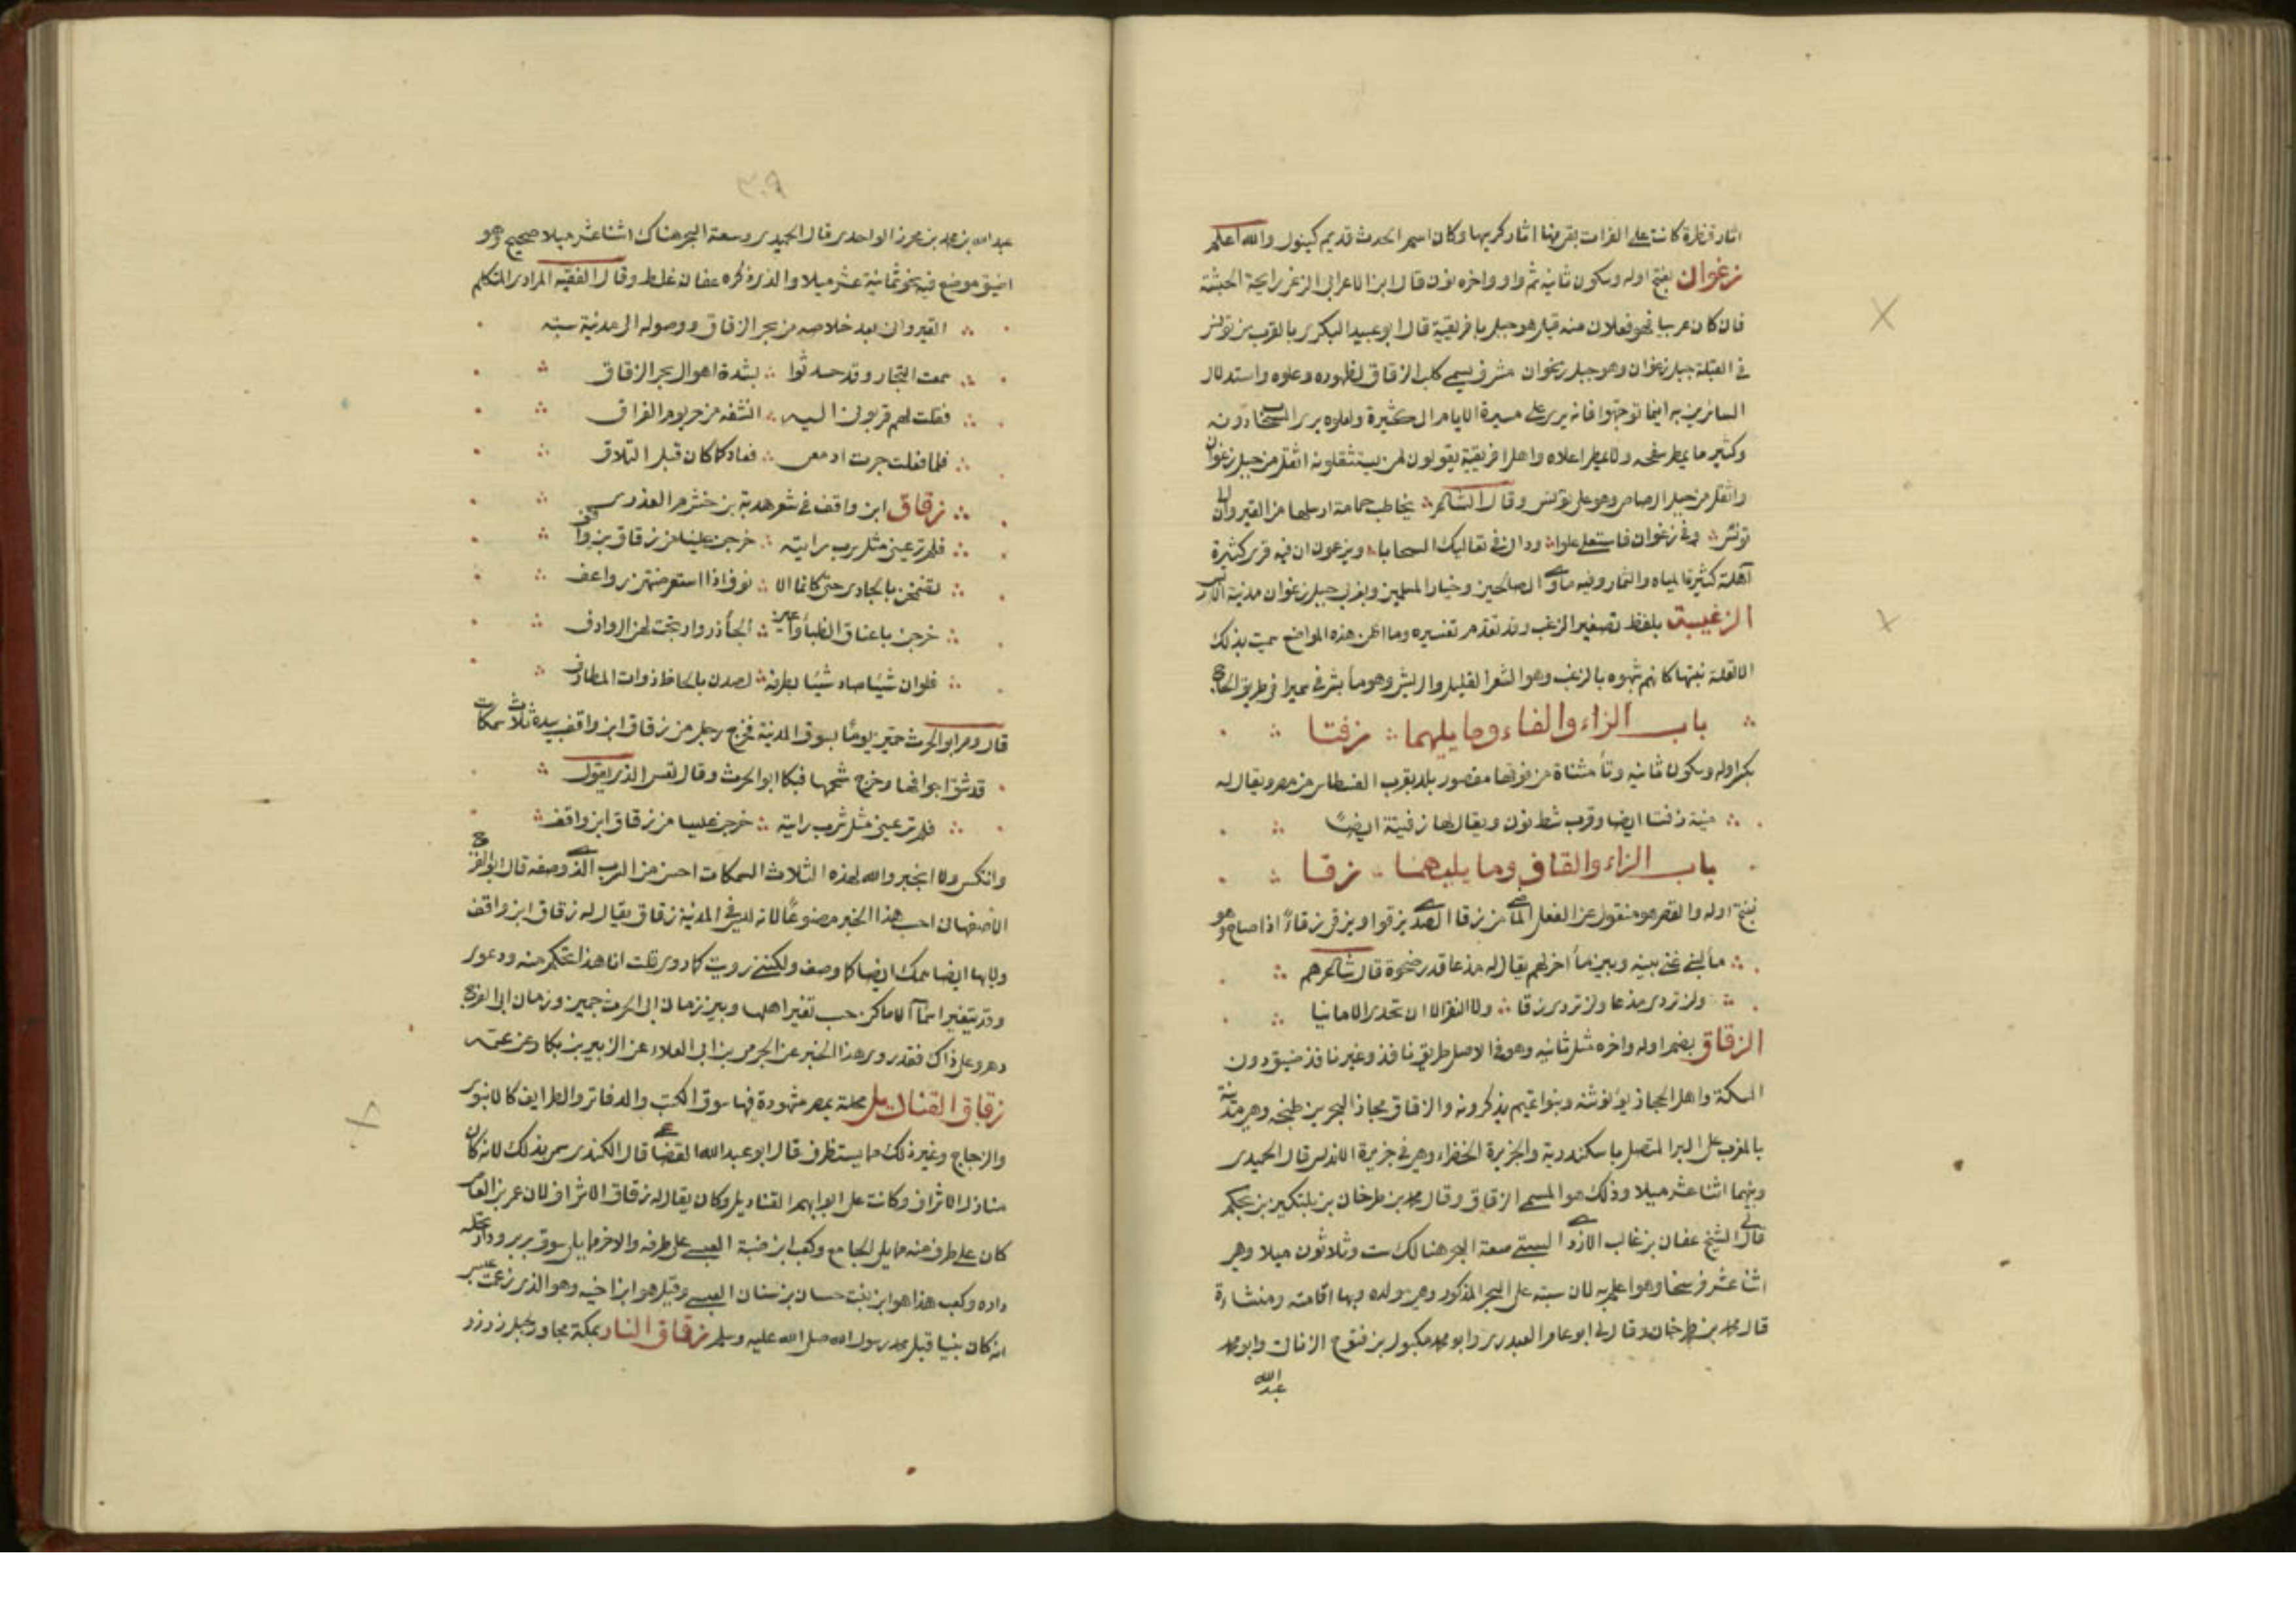 اثار قنطرة كانت على الفرات بقربها اثار كريها وكان اسم الحدث قديم كينوك والله اعلم
زغوان بفتح اوله وسكون ثانيه ثم واو واخره نون قال ابن الاعرابي الزغر رايحة الحبشة
فان كان عربيا فهو فعلان منه قيل هو جبل بافريقية قال ابو عبيد البكري بالقرب من تونس
في القبلة جبل زغوان وهو جبل زغوان مشرف يسمى كلب الزقاق لظهوره وعلوه واستدلال
السائرين به اينما توجهوا فانه يرى على مسيرة الايام الكثيرة ولعلوه يرى السحاب دونه
وكثير ما يمطر سفحه ولا يمطر اعلاه واهل افريقية يقولون لمن يستثقلونه اثقل من جبل زغوان
واثقل من جبل الرصاص وهو على تونس وقال الشاعر يخاطب حمامة ارسلها من القيروان الى
تونس وفي زغوان فاستعلي علوا وداني في تعاليك السحابا ويزعمون ان فيه قرى كثيرة
آهلة كثيرة المياه والثمار وفيه ماوى الصالحين وخيار المسلمين وبغربي جبل زغوان مدينة الاربس
الزغيبة بلفظ تصغير الزغب وقد تقدم تفسيره وما اظن هذه المواضع سميت بذلك
الا لقلة نبتها كانهم شبهوه بالزغب وهو الشعر القليل والريش وهو ماء بشرقي سميرا في طريق الحاج
باب الزاء والفاء وما يليهما زفتا
بكسر اوله وسكون ثانيه وتاء مثناة من فوقها مقصور بلد بقرب الفسطاط من مصر ويقال له
منية زفتا ايضا وقرب شطنوف ويقال لها زفيتة ايضا
باب الزاء والقاف وما يليهما زقا
بفتح اوله والقصر هو منقول عن الفعل الماضي من زقا الصدى يزقوا ويزقي زقاء اذا صاح وهو
ماء لبني غني بينه وبين ماء اخر لهم يقال له مذعا قدر ضحوة قال شاعرهم
ولن تردي مذعا ولن تردي زقا ولا النقر الا ان تجدي الامانيا
الزقاق بضم اوله واخره مثل ثانيه وهو في الاصل طريق نافذ وغير نافذ ضيق دون
السكة واهل الحجاز يؤنثنه وبنوا تميم يذكرونه والزقاق مجاز البحر بين طنجه وهي مدينة
بالمغرب على البر المتصل باسكندرية والجزيرة الخضراء وهي في جزيرة الاندلس قال الحميدي
وبينهما اثنا عشر ميلا وذلك هو المسمى الزقاق وقال محمد بن طرخان بن بلتكين بن بجكم
قال لي الشيخ عفان بن غالب الازدي السبتي سعة البحر هنالك ست وثلاثون ميلا وهي
اثنا عشر فرسخا وهو اعلم به لان سبته على البحر المذكور وهي مولده وبها اقامته ومنشاؤه
قال محمد بن طرخان وقال لي ابو عامر العبدري وابو محمد مكبول بن فتوح الزناتي وابو محمد
عبد الله
٣٠٩
عبد الله بن محمد بن محرز الواحدي قال الحميدي وسعة البحر هناك اثنا عشر ميلا صحيح وهو
اضيق موضع فيه نحو ثمانية عشر ميلا والذي ذكره عفان غلط وقال الفقيه المرادي المتكلم
القيرواني بعد خلاصه من بحر الزقاق ووصوله الى مدينة سبته
سمعت التجار وقد حدثوا بشدة اهوال بحر الزقاق
فقلت لهم قربوني اليه انشفه من حر يوم الفراق
فلما فعلت جرت ادمعي فعاد كما كان قبل التلاق
زقاق ابن واقف في شعر هدبة بن خشرم العذري
فلم تر عيني مثل سرب رايته خرجن علينا من زقاق بن واقف
تضمخن بالجادي حتى كانما الا نوف اذا استعرضتهن رواعف
خرجن باعناق الظباء واعين الجآذر وارتجت لهن الروادف
فلو ان شيئا صاد شيئا بطرفه لصدن بالحاظ ذوات المطارف
قال ومر ابو الحرث جميز يوما بسوق المدينة فخرج رجل من زقاق ابن واقف بيده ثلاث سمكات
قد شق اجوافها وخرج شحمها فبكا ابو الحرث وقال تعس الذي يقول
فلم تر عيني مثل سرب رايته خرجن علينا من زقاق ابن واقف
وانتكس ولا انجبر والله لهذه الثلاث السمكات احسن من السرب الذي وصفه قال ابو الفرج
الاصفهاني احسب هذا الخبر مصنوعا لانه ليس في المدينة زقاق يقال له زقاق ابن واقف
ولا بها ايضا سمك ايضا كما وصف ولكنني رويت كما روي قلت انا هذا تحكم منه ودعوى
وقد يتغير اسماء الاماكن حسب تغير اهلها وبين زمان ابي الحرث جميز وزمان ابي الفرج
دهر وعلى ذاك فقد روى هذا الخبر عن الحرمي بن ابي العلاء عن الزبير بن بكار عن عمه
زقاق القناديل محلة بمصر مشهورة فيها سوق الكتب والدفاتر والطرايف كالابنوس
والزجاج وغير ذلك مما يستظرف قال ابو عبد الله القضاعي قال الكندي سمي بذلك لانه كان
منازل الاشراف وكانت على ابوابهم القناديل وكان يقال له زقاق الاشراف لان عمر بن العاص
كان على طرف منه مما يلي الجامع وكعب ابن ضنة العبسي على طرفه والاخر مما يلي سوق بربر ودار نخلة
داره وكعب هذا هو ابن بنت حسان بن سنان العبسي وقيل هو ابن اخيه وهو الذي زعمت عبس
انه كان نبيا قبل محمد رسول الله صلى الله عليه وسلم زقاق النار بمكة مجاور لجبل زرزر